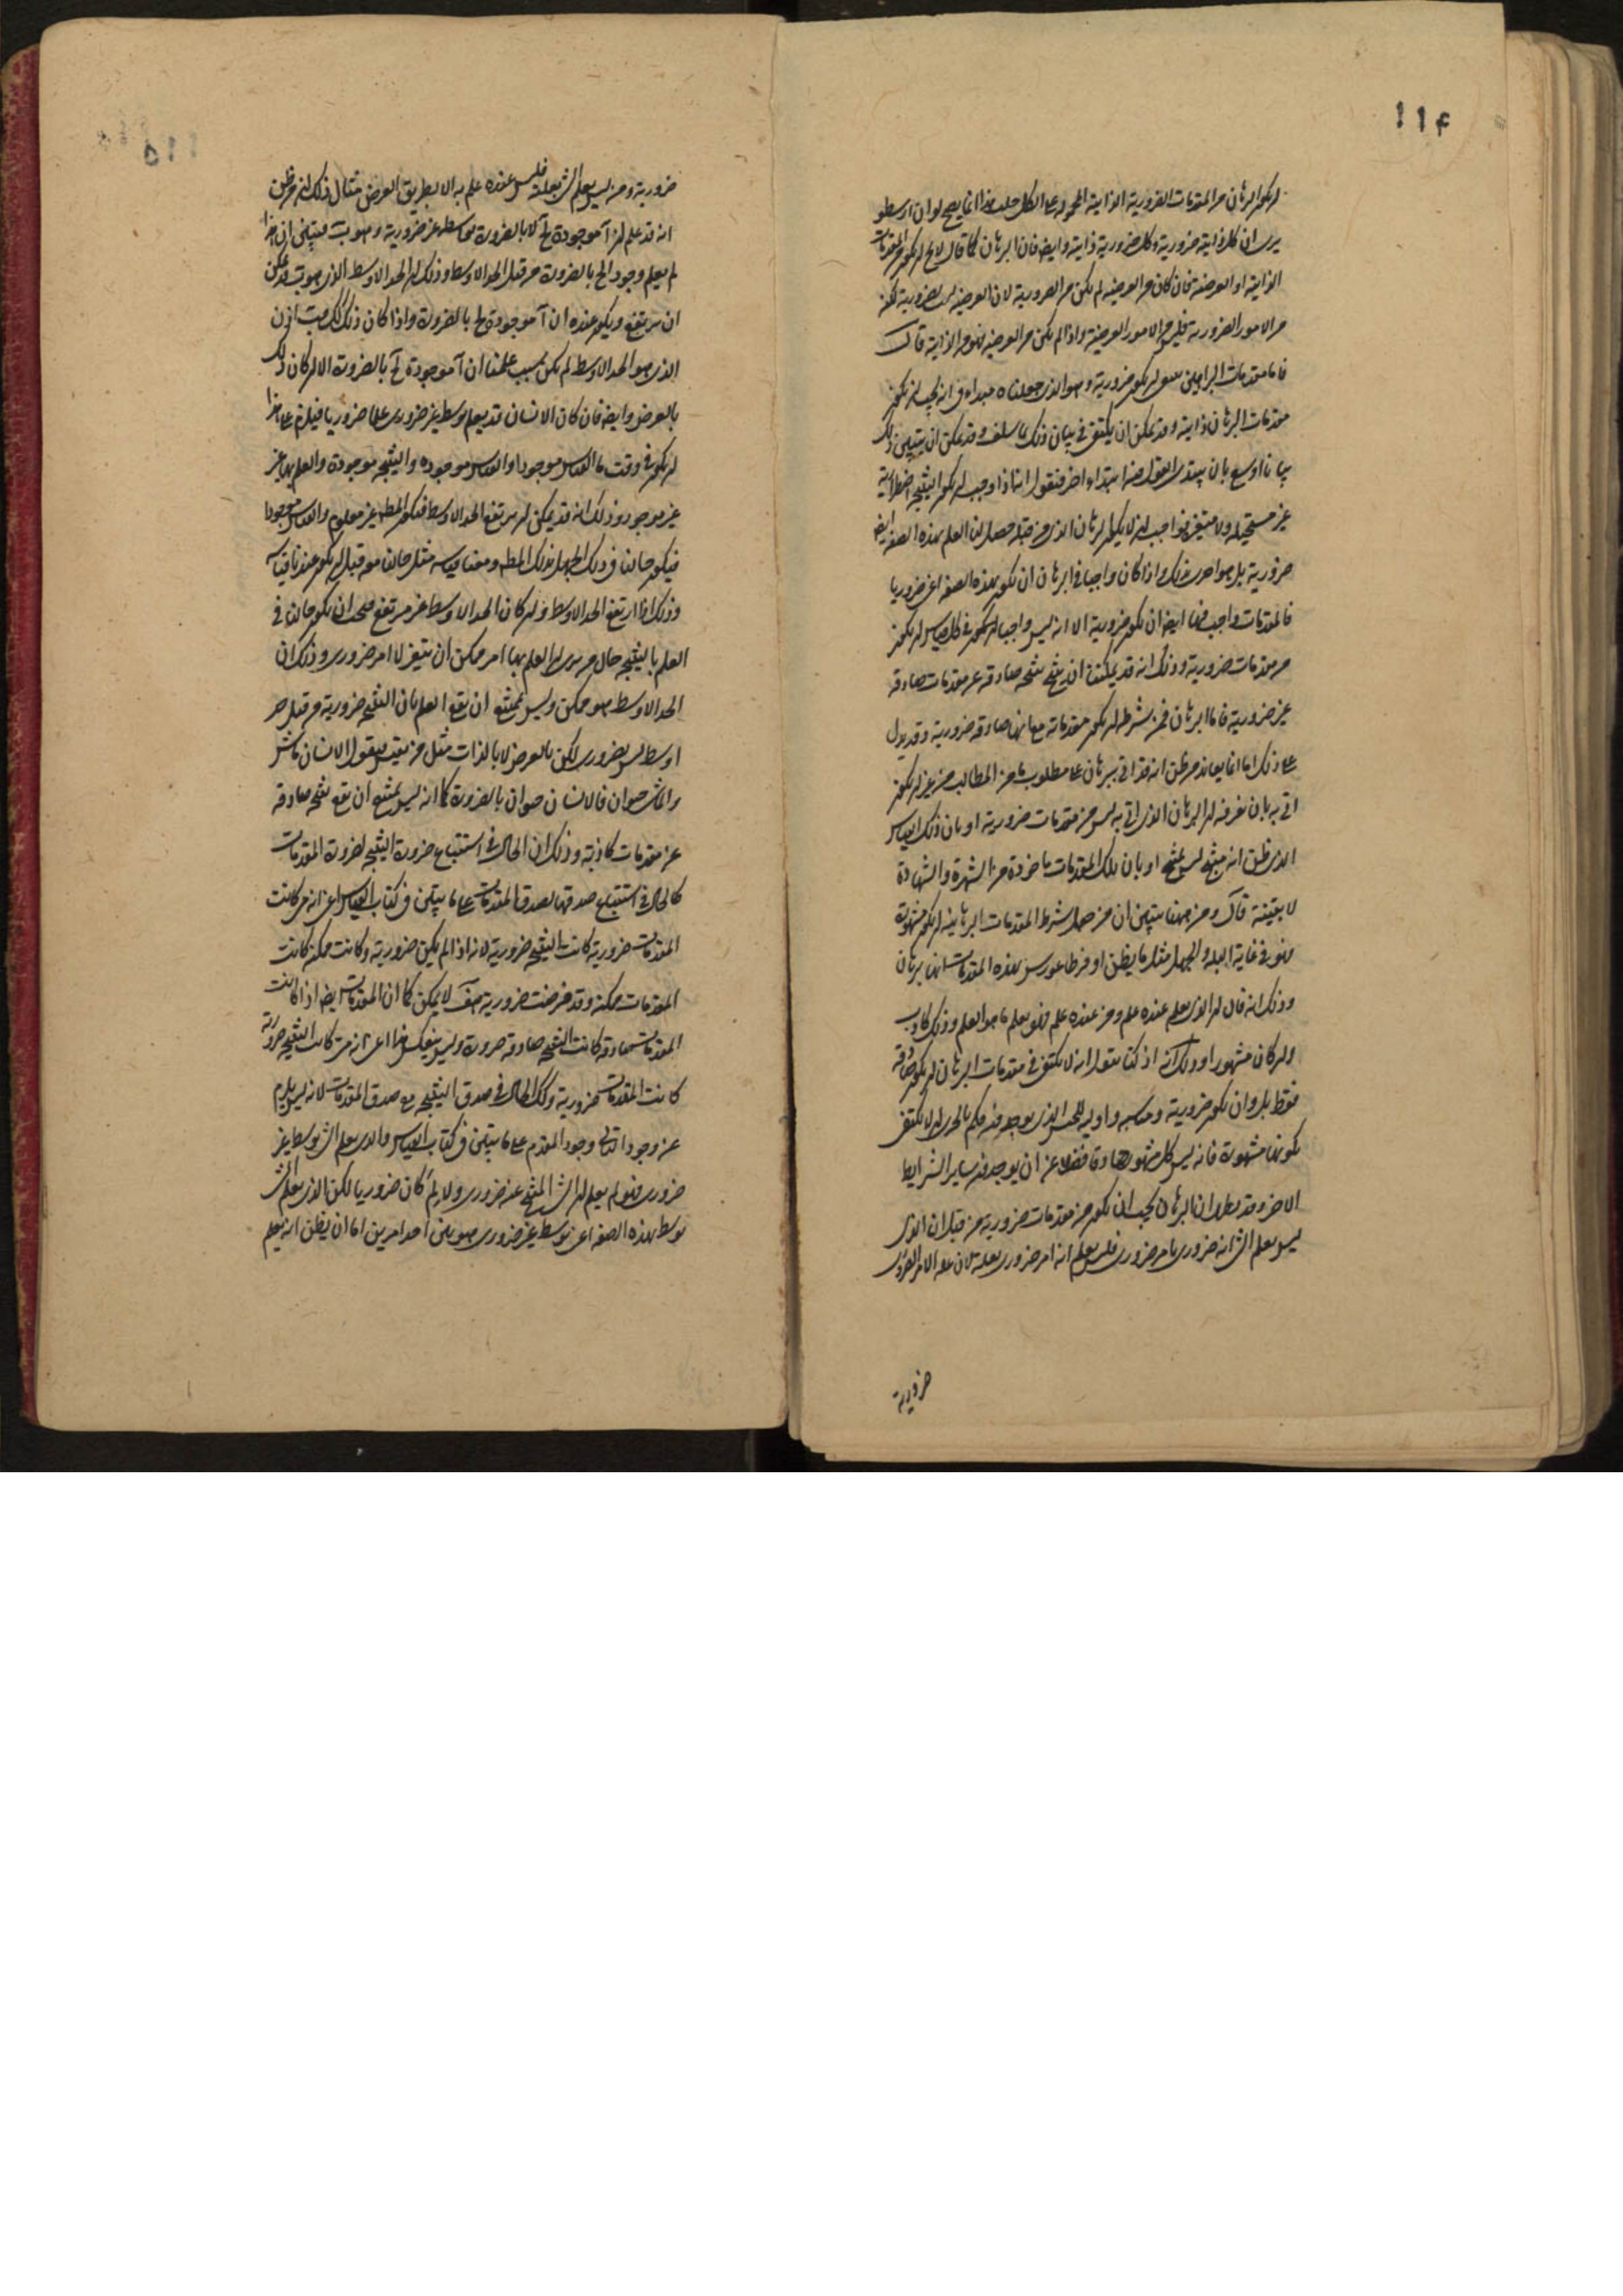 ١١۴
ليكون البرهان من المقدمات الضرورية الذاتية المحمولة على الكل جلب هذا انما يصح لو ان ارسطو
يرى ان كل ذاتية ضرورية وكل ضرورية ذاتية وايضا فان البرهان كما قال لا يخ ان يكون من المقدمات
الذاتية او العرضية فان كان من العرضية لم يكن من الضرورية لان العرضية ليست بضرورية لكنه
من الامور الضرورية فليس من الامور العرضية واذا لم يكن من العرضية فهو من الذاتية قال
فاما مقدمات البراهين ان يكون ضرورية وهو الذي جعلناه مبداء في انه يجب ان يكون
مقدمات البرهان ذاتية وقد يمكن ان يكتفى في بيان ذلك بما سلف وقد يمكن ان يتبين ذلك
بيانا اوسع بان يبتدى القول هنا ابتداء اخر فنقول انا اذا وجب ان يكون النتيجة اضطرارية
غير مستحيلة ولا متغيرة فواجب ان لا يكون البرهان الذي من قبله حصل لنا العلم بهذه الصفة ايضا
ضرورية بل هو احرى بذلك واذا كان واجبا في البرهان ان يكون بهذه الصفة اعني ضروريا
فالمقدمات واجب فيها ايضا ان يكون ضرورية الا انه ليس واجبا ان يكون في كل قياس ان يكون
من مقدمات ضرورية وذلك انه قد يمكننا ان ينتج نتيجة صادقة عن مقدمات صادقة
غير ضرورية فاما البرهان فمن شرطه ان يكون مقدماته مع انها صادقة ضرورية وقد يدل
على ذلك انا انما يعاند من ظن انه قد اتى ببرهان على مطلوب ما من المطالب من غير ان يكون
اتى به بان نعرفه ان البرهان الذي اتى به ليس من مقدمات ضرورية او بان ذلك القياس
الذي ظن انه منتج ليس بمنتج او بان تلك المقدمات ماخوذة من الشهرة والشهادة
لا يقينية قال ومن ههنا يتبين ان من جعل شرط المقدمات البرهانية ان يكون مشهورة
فهو في غاية البله والجهل مثل ما يظن افروطاغورس بهذه المقدمات انها برهان
وذلك انه قال ان الذي يعلم عنده علم ومن عنده علم فهو يعلم ما هو العلم وذلك كاذب
وان كان مشهورا وذلك انه اذ كنا نقول انه لا يكتفى في مقدمات البرهان ان يكون صادقة
فقط بل وان يكون ضرورية ومناسبة واولية للجنس الذي يوجد فيه فكم بالحرى ان لا يكتفى
بكونها مشهورة فانه ليس كل مشهور صادقا فضلا عن ان يوجد فيه ساير الشرايط
الاخر وقد يظهر ان البرهان يجب ان يكون من مقدمات ضرورية من قبل ان الذي
ليس يعلم الشئ انه ضروري بامر ضروري فليس يعلم انه امر ضروري بعلته لان علة الامر الضروري
ضرورية
١١۵
ضرورية ومن ليس يعلم الشئ بعلته فليس عنده علم به الا بطريق العرض مثال ذلك انه من ظن
انه قد علم ان آ موجودة لج بالضرورة بواسطة غير ضرورية وهو ب فيتبين ان هذا
لم يعلم وجود الج بالضرورة من قبل الحد الاوسط وذلك ان الحد الاوسط الذي هو ب قد يمكن
ان يرتفع ويكون عنده ان آ موجودة لج بالضرورة واذا كان ذلك كذلك فب اذن
الذي هو الحد الاوسط لم يكن بسبب علمنا ان آ موجودة لج بالضرورة الا ان كان ذلك
بالعرض وايضا فان كان الانسان قد يعلم بوسط غير ضروري علما ضروريا فيلزم على هذا
ان يكون في وقت ما القياس موجودا والقياس موجوده والنتيجة موجودة والعلم بها غير
غير موجود وذلك انه قد يمكن ان يرتفع الحد الاوسط فيكون المطلوب غير معلوم والقياس موجودا
فيكون حالنا في ذلك الجهل بذلك المطلوب ومعنا قياسه مثل حالنا معه قبل ان يكون عندنا قياسه
وذلك اذا ارتفع الحد الاوسط وان كان الحد الاوسط غير مرتفع صح ان يكون حالنا في
العلم بالنتيجة حال من يرى ان العلم بها امر ممكن ان يتغير لا امر ضروري وذلك ان
الحد الاوسط هو ممكن وليس يمتنع ان يقع العلم بان النتيجة ضرورية من قبل حد
اوسط ليس بضروري لكن بالعرض لا بالذات مثل من يقيس فيقول الانسان ماش
والماشي حيوان فالانسان حيوان بالضرورة كما انه ليس يمتنع ان يقع نتيجة صادقة
عن مقدمات كاذبة وذلك ان الحال في استتباع ضرورة النتيجة لضرورة المقدمات
كالحال في استتباع صدقها لصدق المقدمات على ما يتبين في كتاب القياس اعني انه متى كانت
المقدمات ضرورية كانت النتيجة ضرورية لانه اذا لم يكن ضرورية وكانت ممكنة كانت
المقدمات ممكنة وقد فرضت ضرورية هف لا يمكن كما ان المقدمات ايضا اذا كانت
المقدمات صادقة كانت النتيجة صادقة ضرورة وليس ينعكس هذا اعني انه متى كانت النتيجة ضرورية
كانت المقدمات ضرورية وكذلك الحال في صدق النتيجة مع صدق المقدمات لانه ليس يلزم
عن وجود التالي وجود المقدم على ما يتبين في كتاب القياس والذي يعلم الشئ بوسط غير
ضروري فهو لم يعلم ان الشئ المنتج عنه ضروري ولا لم كان ضروريا لكن الذي يعلم الشئ
بوسط بهذه الصفة اعني بوسط غير ضروري هو بين احد امرين اما ان يظن انه يعلم